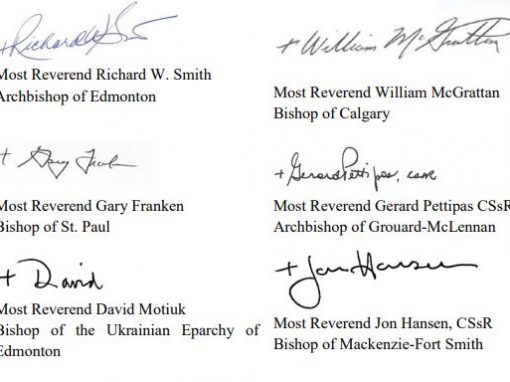 +Richard W Smith
Most Reverend Richard W. Smith
Archbishop of Edmonton
+ William McGrattan
Most Reverend William McGrattan
Bishop of Calgary
+ Gary Franken
Most Reverend Gary Franken
Bishop of St. Paul
+Gerard Pettipas, cssr
Most Reverend Gerard Pettipas CSsR
Archbishop of Grouard-McLennan
+ David
Most Reverend David Motiuk
Bishop of the Ukrainian Eparchy of
Edmonton
+ Jon Hansen
Most Reverend Jon Hansen, CSsR
Bishop of Mackenzie-Fort Smith